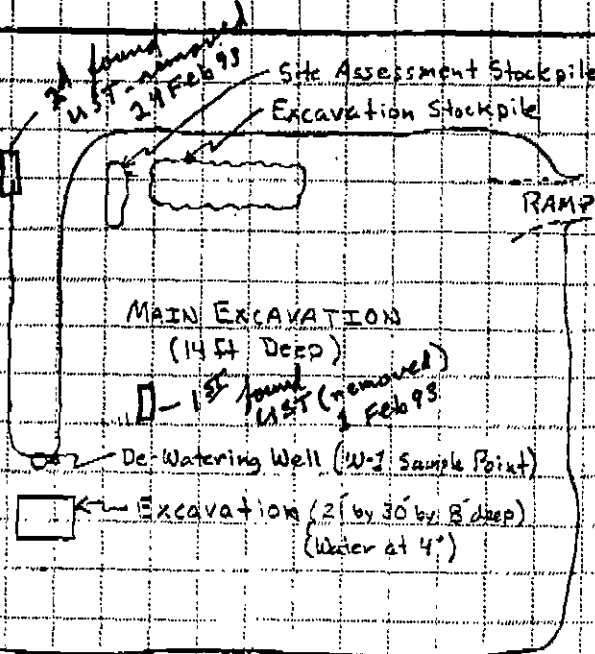 2d found
UST-removed
24 Feb 93
Site Assessment Stockpile
Excavation Stockpile
RAMP
MAIN EXCAVATION
(14 Ft Deep)
1st found
UST (removed)
1 Feb 93
De-Watering Well (W-1 Sample Point)
Excavation (2' by 30' by 8' deep)
(Water at 4')